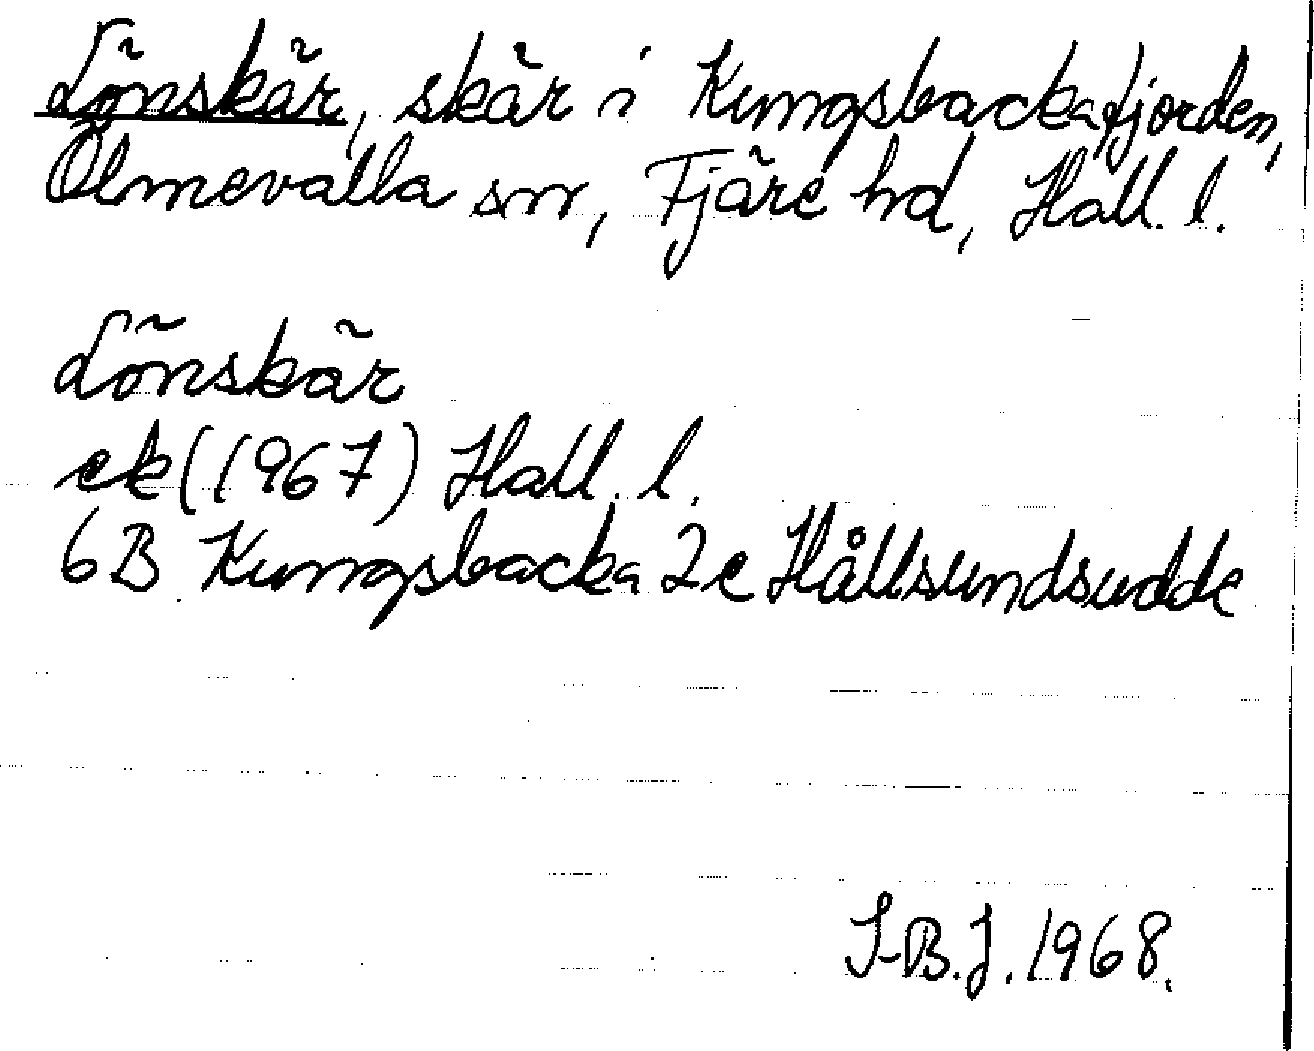 Lönskär, skär i Kungsbackafjorden,
Ölmevalla sn, Fjäre hd, Hall. l.
Lönskär
ek (1967) Hall. l.
6B Kungsbacka 2c Hållsundsudde
I-B.J. 1968.